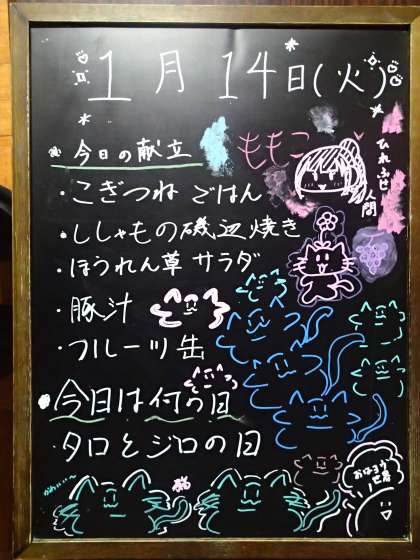 1月14日(火)
今日の献立
ももこ
ひれふせ
人間
・こぎつねごはん
・ししゃもの磯辺焼き
・ほうれん草サラダ
・豚汁
・フルーツ缶
今日は何の日
・タロとジロの日
かわいい〜
おはよう